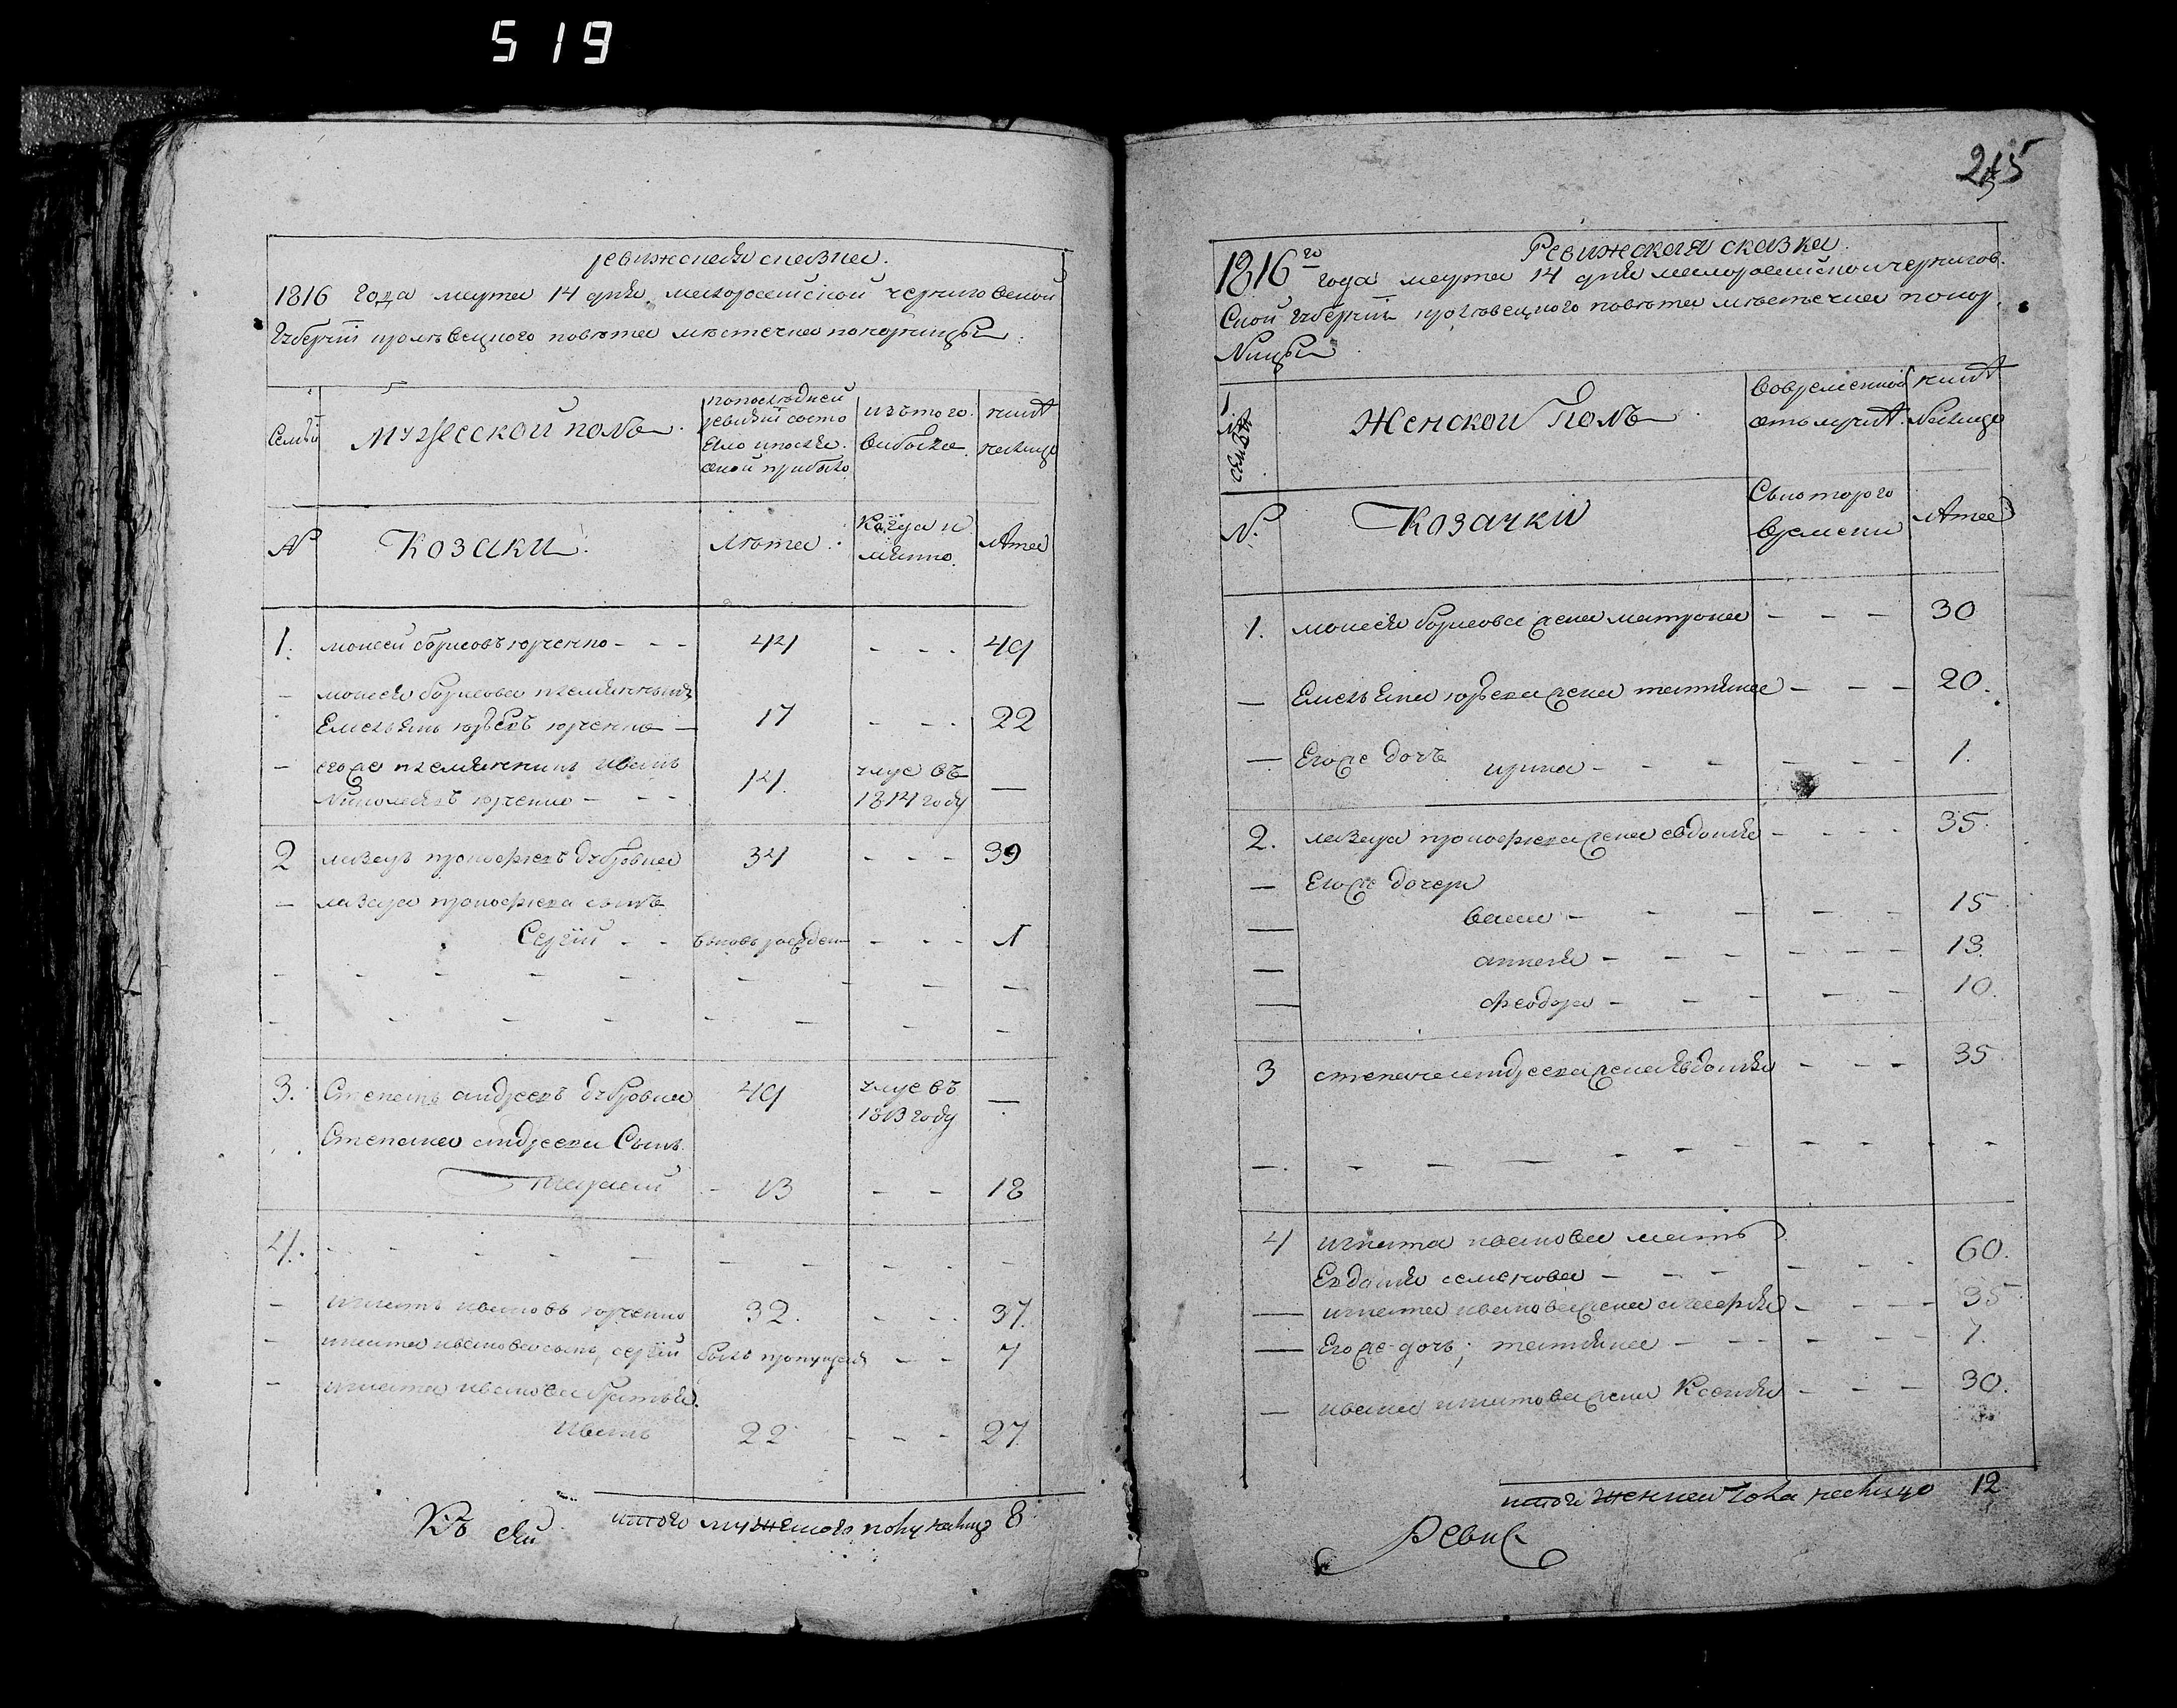 519
ревижская сказка.
1816 года марта 14 дня малоросейской чернiговской
Губернiи кролѣвецкого повѣта мѣстечка понорницы:
Семьи
Мужеской полъ.
попослѣдней
ревизiи состо
яло и после
оной прибыло
изътого.
выбыло.
ныне
налицо
№
Козаки.
лѣта
Когда и
мянно.
лѣта
1. моисей борисовъ юрченко - - - 44 - - - 49
- моисея борисова племянники
Емелъянъ юрьевъ юрченко - 17 - - - 22
- егоже племянникъ иванъ
Николаевъ юрченко - - - 14. умре въ 1814 году -
2 лазарь прокофиевъ дубровка 34 - - - 39
- лазаря прокофиева сынъ
Сергiй - - вновь рожден - - - 1
3. Степанъ андреевъ дубровка 49 умре въ 1813 году -
Степана андреева Сынъ
Тарасий - 13 - - 18
4. - - - - -
- игнатъ ивановъ юрченко 32. - - - 37.
- игната иванова сынъ, сергiй былъ пропущенъ - - 7
- игната иванова братья.
Иванъ 22 - - - 27.
итого мужеского полу налицо 8
Къ сей
215
Ревижская сказка.
1816го года марта 14 дня малоросейской чернигов.
Ской Губернiи кролѣвецкого повѣта мѣстечка понор.
Ницы
семьи
Женской Полъ
Вовременной
отълучкѣ.
нинѣ
Налицо
№.
Козачки
Съкоторого
Времени
лѣта
1. моисея борисова жена матрона - - - 30
- Емелъяна юрьева жена татияна - - - 20.
- Егоже дочъ ирина - - - - - - 1.
2. лазаря прокофиева жена евдокия - - - - 35.
- Егоже дочери
- - - - - - 15
- - - - - - - 13.
- феодора - - - - - 10.
3 степана андреева жена Явдокия - - - 35
- . - - - - - - - - - -
4 игната иванова мать
Евдокия семенова - - - - - - 60.
- игната иванова жена - - - - 35
- Егоже дочъ; татияна - - - - - - 7.
- ивана игнатова жена Ксения - - - 30.
итого женска пола налицо 12
Ревис